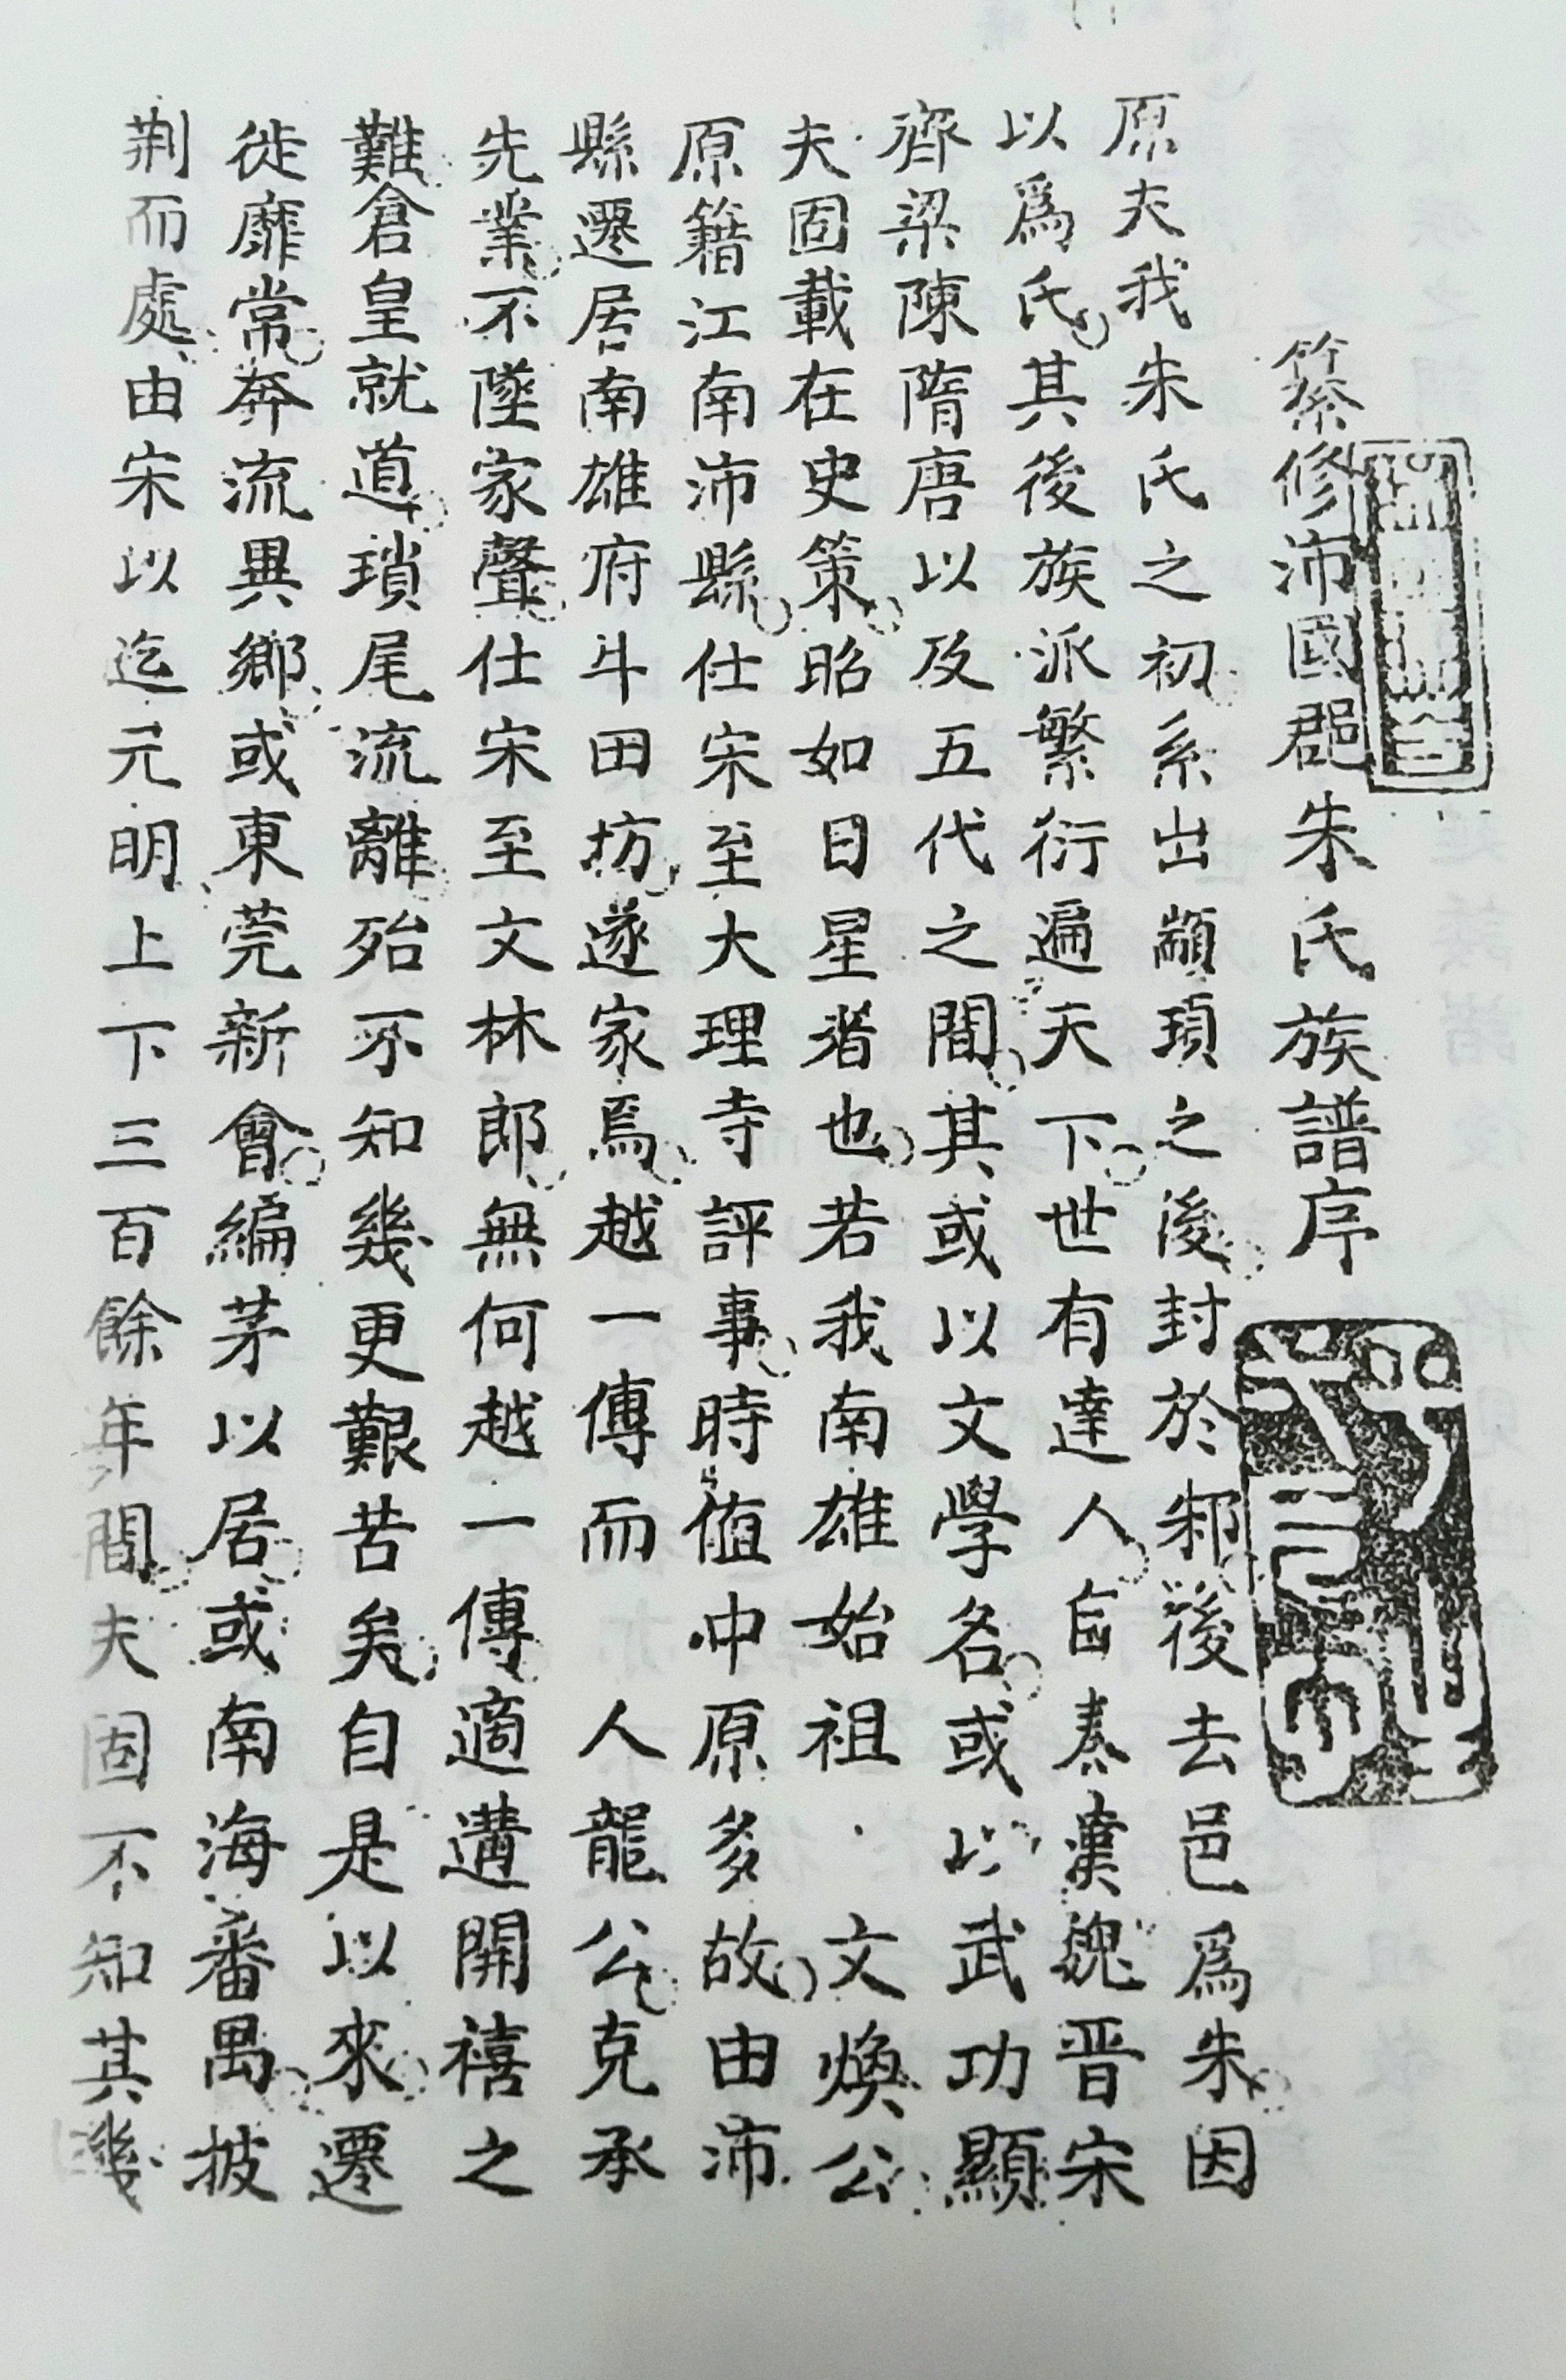 纂修沛國郡朱氏族譜序
原夫我朱氏之初系出顓頊之後封於邾後去邑爲朱因
以爲氏其後族派繁衍遍天下世有達人自秦漢魏晋宋
齊梁陳隋唐以及五代之間其或以文學名或以武功顯
夫固載在史策昭如日星者也若我南雄始祖文煥公
原籍江南沛縣仕宋至大理寺評事時值中原多故由沛
縣遷居南雄府斗田坊遂家焉越一傳而人龍公克承
先業不墜家聲仕宋至文林郎無何越一傳適遘開禧之
難倉皇就道瑣尾流離殆不知幾更艱苦矣自是以來遷
徙靡常奔流異鄉或東莞新會編茅以居或南海番禺披
荆而處由宋以迄元明上下三百餘年間夫固不知其幾